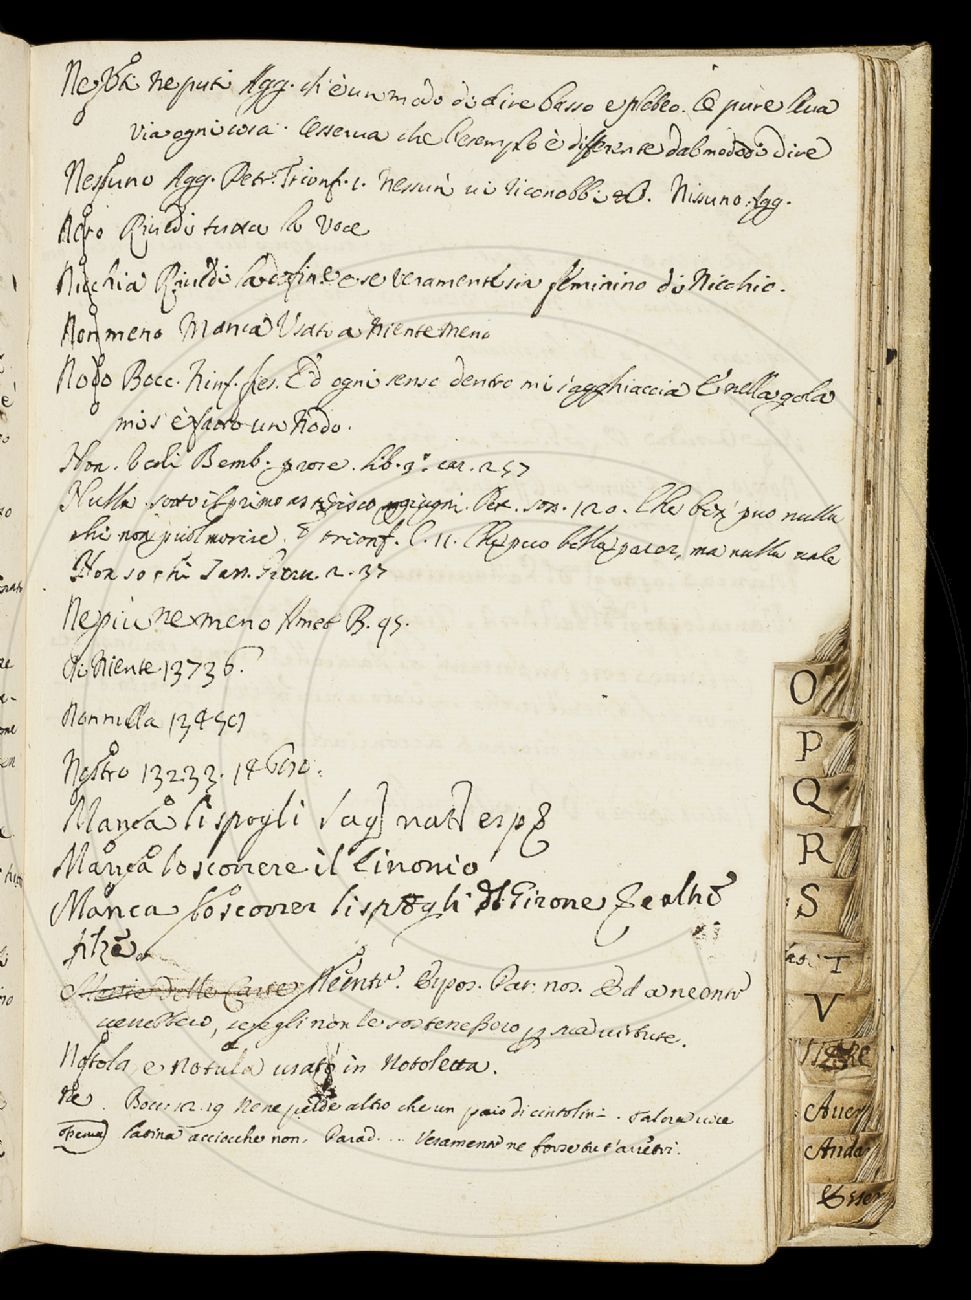 Ne puti ne puti Agg. ch'è un modo di dire basso e plebeo. E pure leva
via ogni cosa. Osserva che l'esempio è differente dal modo di dire
Nessuno Agg. Petr. Trionf. 1. Nessun vi riconobbi &. Nissuno Agg.
Nero Rivedi tutta la Voce
Nicchia Rivedi la define se veramente sia feminino di Nicchio.
Nonmeno Manca Usato a Nientemeno
Nodo Bocc. Ninf. fies. Ed ogni senso dentro mi s'agghiaccia E nella gola
mi s'è fatto un Nodo.
Non. Vedi Bemb. prose. lib. 3. car. 257
Nulla sotto il primo aggiugni. Petr. son. 120. Che ben può nulla
chi non può morire. & trionf. C. 11. Che può bella parer, ma nulla vale
Non so chi Tass. Geru. 2. 37
Ne più ne meno Amet B. 95.
di Niente 13736.
Nonnulla
Nostro 13233.
Manca li spogli Sag] nat]
Manca lo scorrere il Cinonio
Manca lo scorrer li spogli di Girone
filze
Neente. Espos. Pat. nos. Ed a neente
verrebbero, se egli non le sostenessero sua virtute.
Notola, e Notula usato in Notoletta.
Ne. Bocc. 12. 19 Ne ne altro che un paio di cintolin. Talora vice
latina acciocche non. Parad. ... Veramente ne forse tu t'arretri.
O
P
Q
R
S
T
V
Aver
Anda
Esser